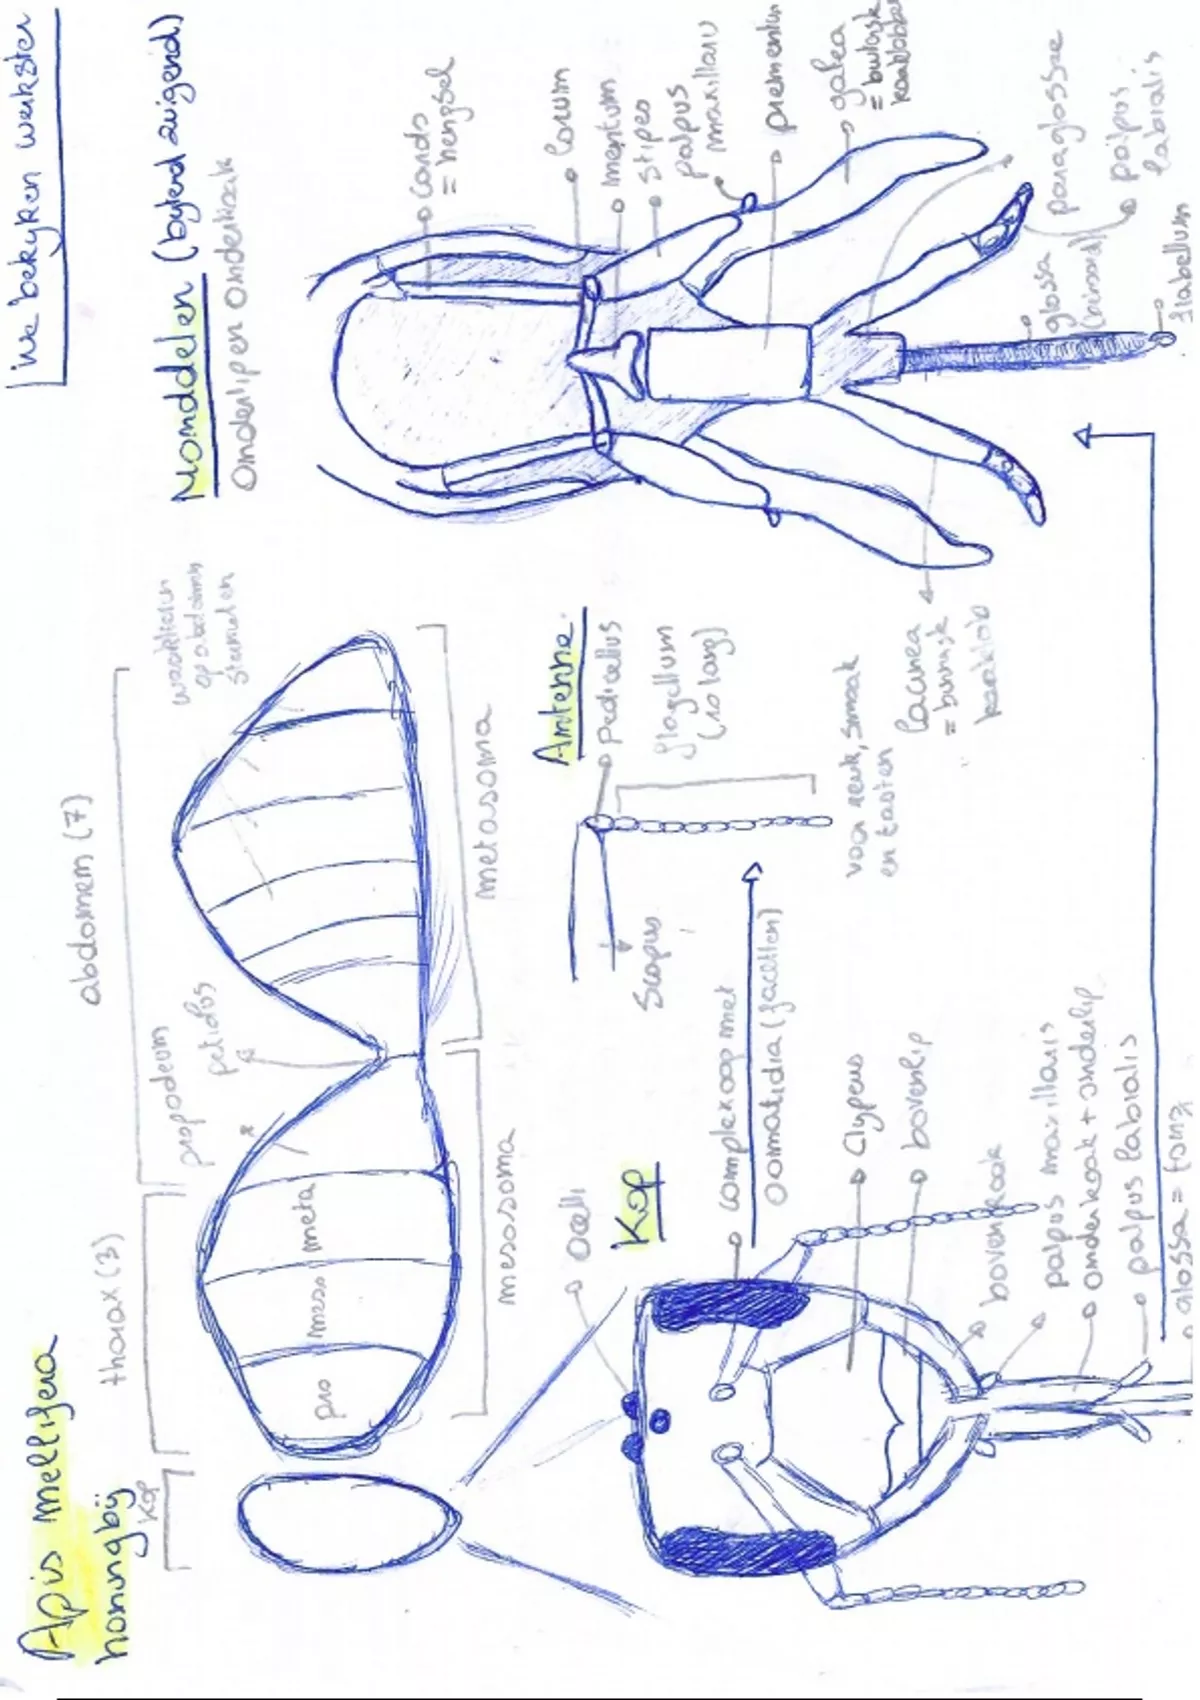 Apis mellifera
honingbij
we bekijken werkster
Kop
thorax (3)
abdomen (7)
propodeum
petiolus
*
waaklieren
op abdomen
sternieten
pro
meso
meta
mesosoma
metasoma
Monddelen (bijtend zuigend)
Onderlip en Onderkaak
Cardo
= hengsel
Lorum
mentum
stipes
palpus
maxillaris
prementum
galea
= buitenste
kaaklobbe
paraglossae
palpus
labialis
glossa
flabellum
lacinea
= binnenste
kaaklob
Antenne
pedicellus
flagellum
(10 lang)
Scapus
voor reuk, smaak
en tasten
Kop
Ocelli
complexoog met
oomatidia (facetten)
Clypeus
bovenlip
bovenkaak
palpus maxillaris
onderkaak + onderlip
palpus labialis
glossa = tong